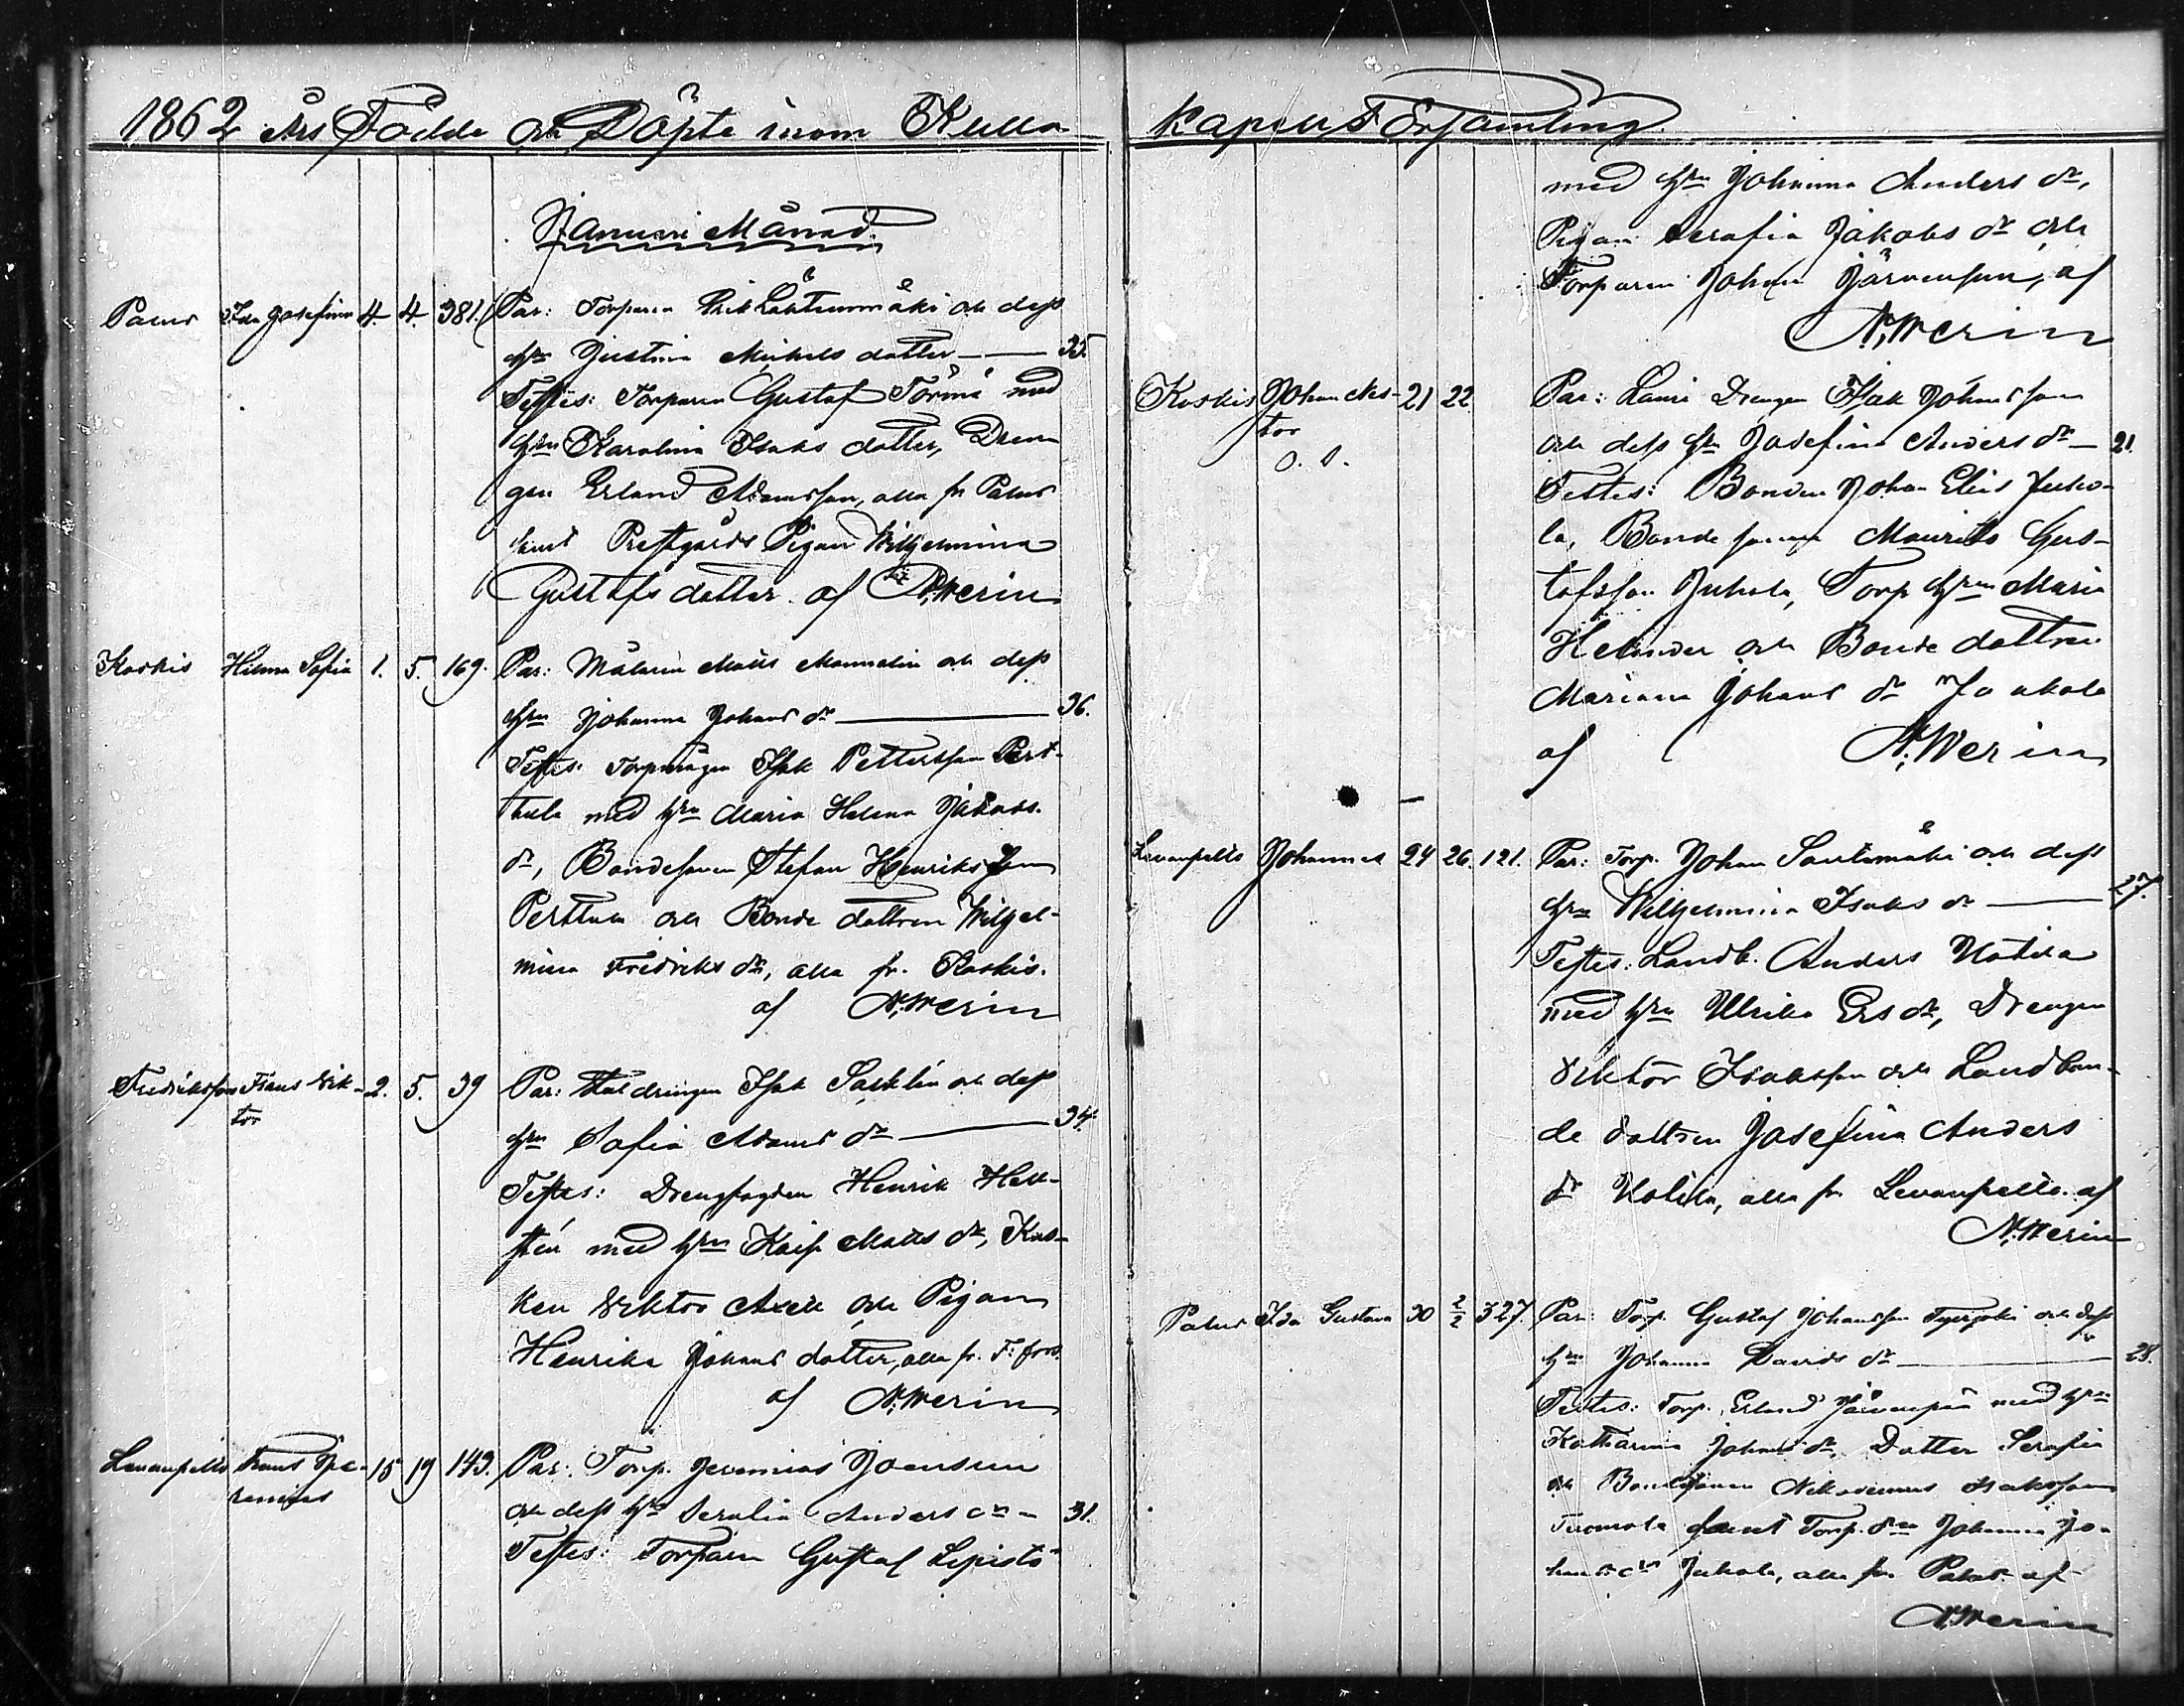 1862 Års Födde och Döpte inom Kulla
Januari Månad.
Palus Ida Josefina 4. 4. 381. Par: Torparen Erik Lähteenmäki och dess
hru Justina Michels dotter — 35.
Testes: Torparen Gustaf Törmä med
hru Karolina Isaks dotter, Dren-
gen Erland Adamsson, alla fr. Palus
samt Prestgårds Pigan Wilhelmina
Gustafs dotter. af N. Werin
Koskis Hilma Sofia 1. 5. 169. Par: Målaren Matts Mannelin och dess
hru Johanna Johans dr — 36.
Testes: Torpmågen Isak Pettersson Pert-
tula med hru Maria Helena Jakobs
dr, Bondesonen Stefan Henriksson
Perttula och Bonde dottren Wilhel-
mina Fredriks dr, alla fr. Koskis.
af N. Werin
Fredriksfors Frans Vik- 2. 5. 39 Par: Stal drengen Isak Sacklin och dess
tor
hru Sofia Adams dr — 34.
Testes: Drengfogden Henrik Hell-
stén med hru Kaisa Matts dr, Kus-
ken Viktor Axell och Pigan
Henrika Johans dotter, alla fr. F:fors.
af N. Werin
Levanpelto Frans 15 19 143. Par: Torp. Jeremias Joensuu
och dess hru Serafia Anders dr — 31.
Testes: Torparen Gustaf Lepistö
Kapells Församling.
med hru Johanna Anders dr,
Pigan Serafia Jakobs dr och
Torparen Johan Järvensuu, af
N. Werin
Koskis Johan Nes- 21 22. Par: Isak Johansson
tor
o. ä.
och dess hru Josefina Anders dr — 21.
Testes: Bonden Johan Elias Juho-
la, Bonde sonen Maurits Gus-
tafsson Juhola, Torp hrun Maria
Helander och Bonde dottren
Mariana Johans dr Jaakola
af N. Werin
Levanpelto Johannes 24 26. 121. Par: Torp. Johan Santamäki och dess
hru Wilhelmina Isaks dr — 27.
Testes: Landb. Anders Uotila
med hru Ulrika Ers dr, Drengen
Viktor Isaksson och Landbon-
de dottren Josefina Anders
dr Uotila, alla fr Levanpelto. af
N. Werin
Palus Ida Gustava 30 2/2 327. Par: Torp. Gustaf Johansson och dess
hru Johanna Davids dr — 28.
Testes: Torp. Erland Järvenpää med hru
Katharina Johans dr, Dotter Serafia
och Bondesonen Nikodemus Isaksson
Tuomola samt Torp. dr Johanna Jo-
hans dr Juhola, alla fr Palus. af
N. Werin